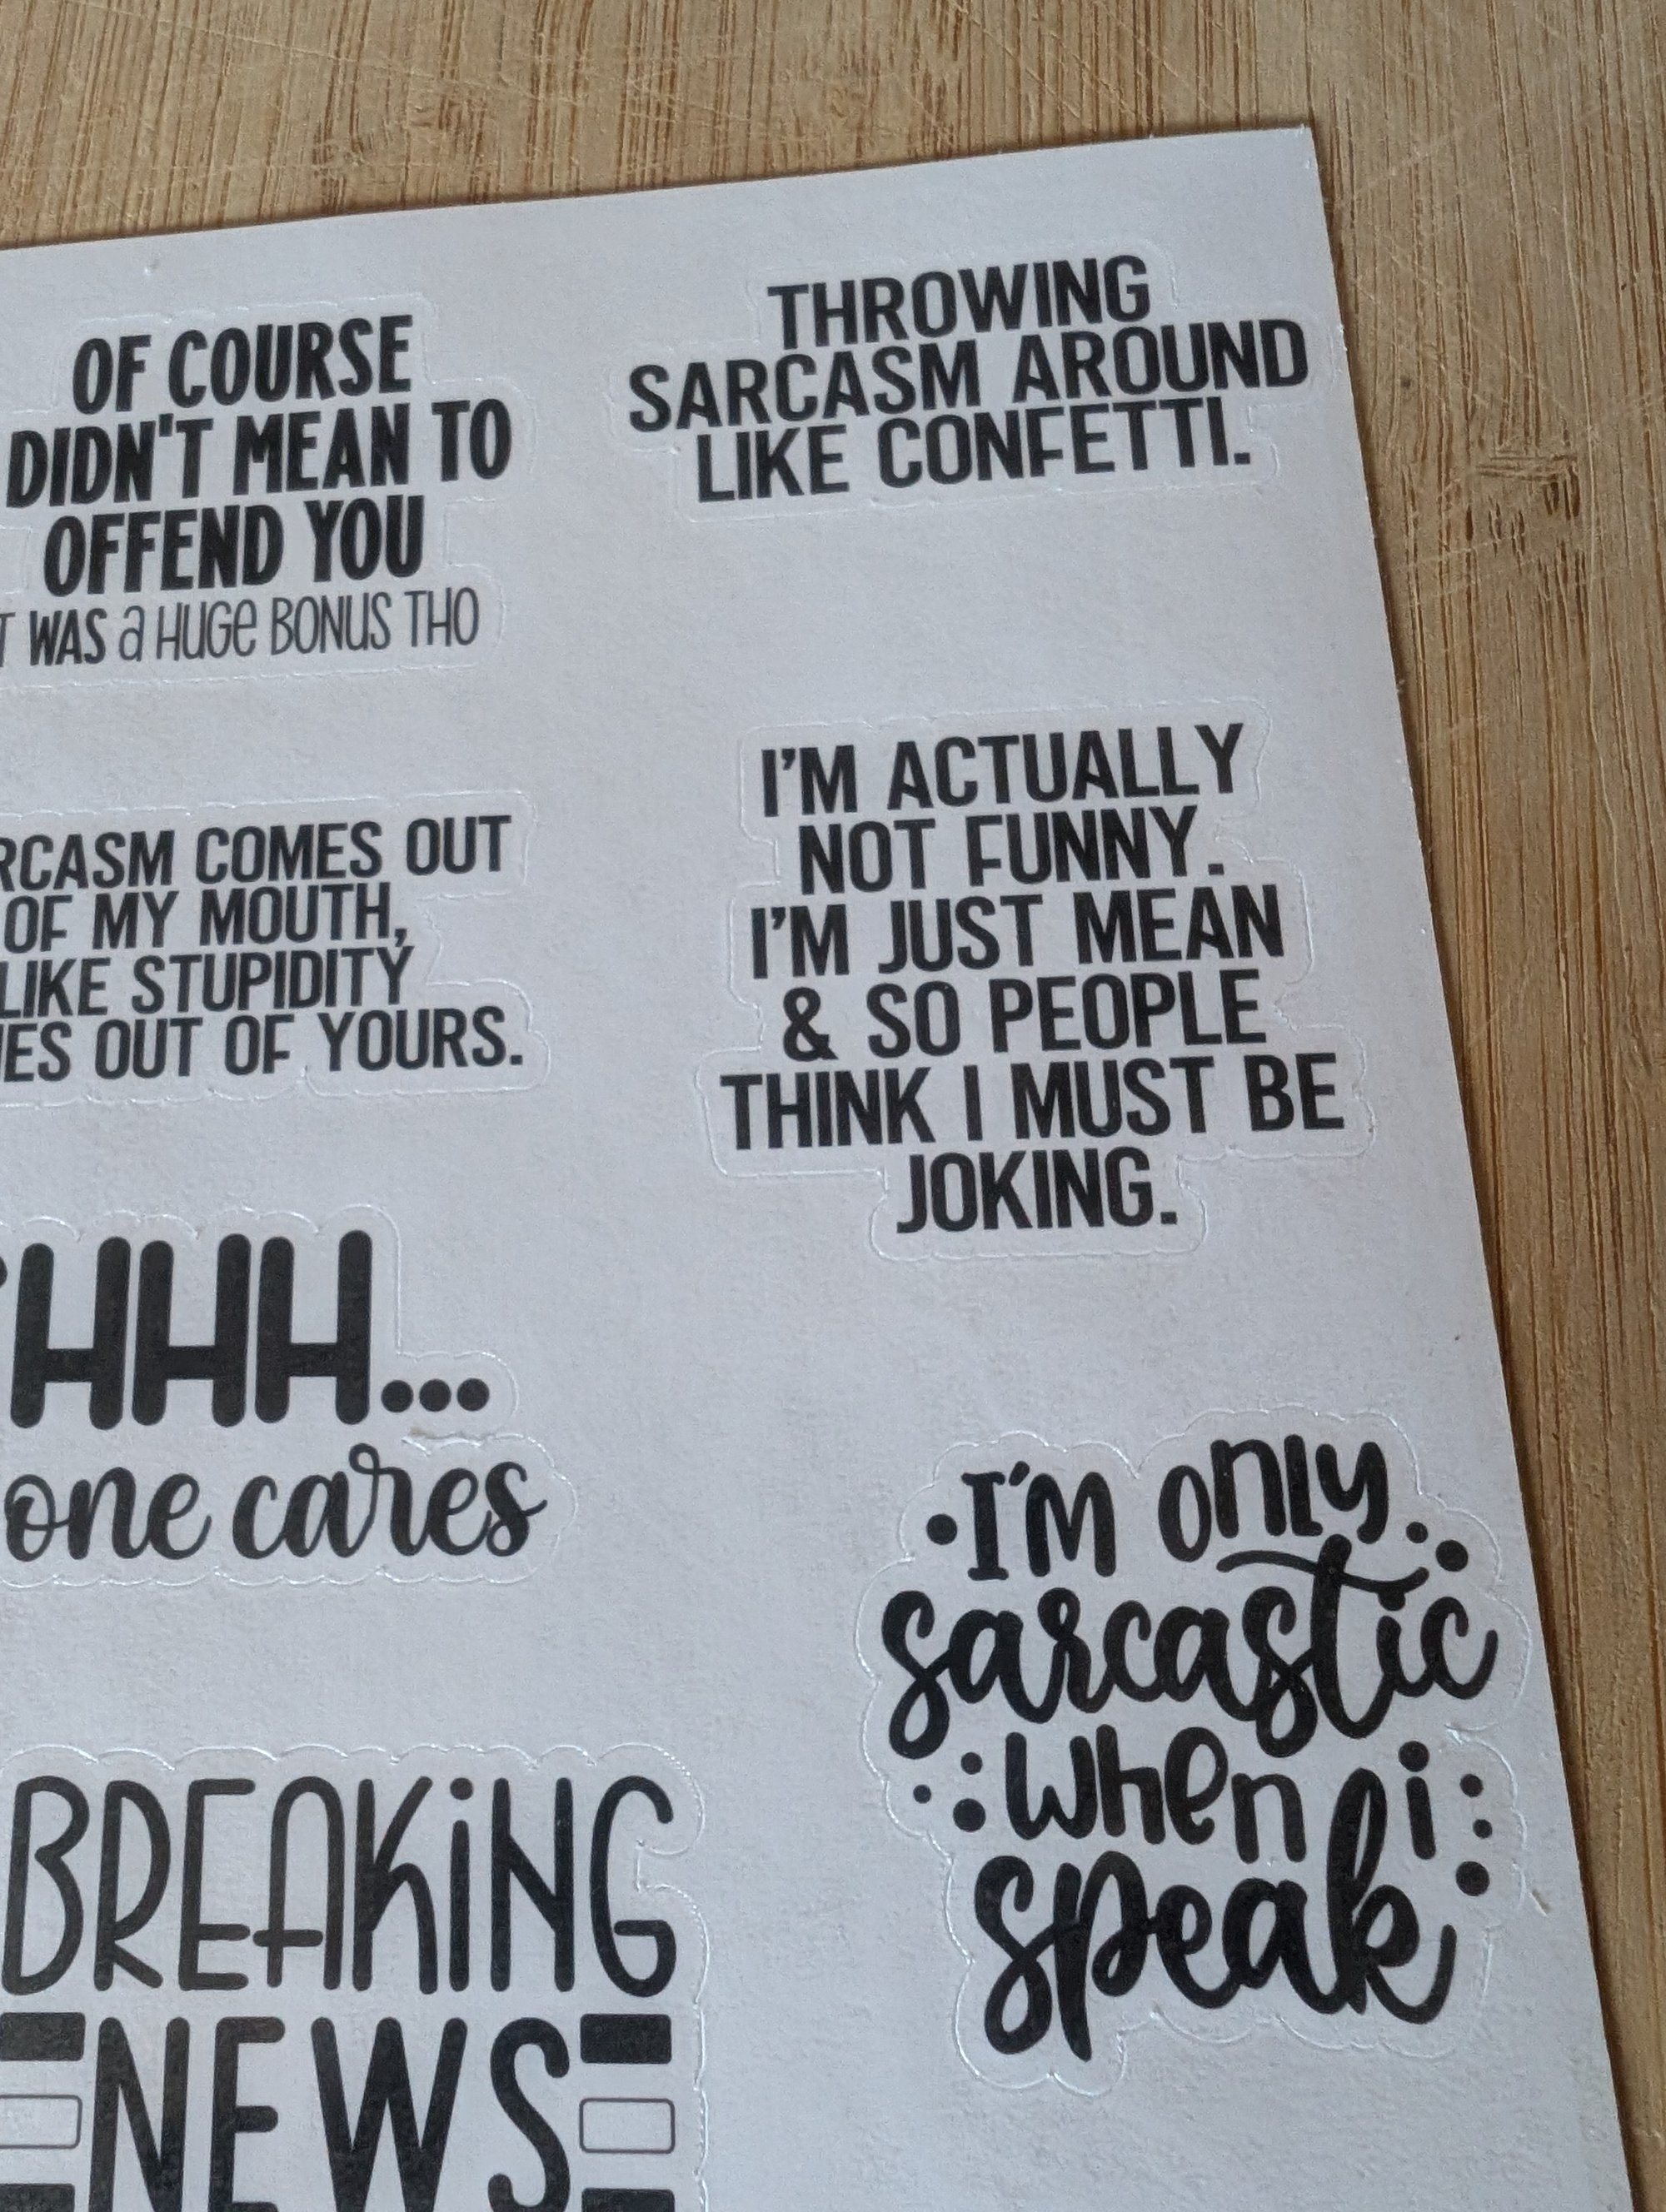 OF COURSE
DIDN'T MEAN TO
OFFEND YOU
WAS a HUGe BONUS THO
THROWING
SARCASM AROUND
LIKE CONFETTI.
RCASM COMES OUT
OF MY MOUTH,
LIKE STUPIDITY
ES OUT OF YOURS.
I'M ACTUALLY
NOT FUNNY.
I'M JUST MEAN
& SO PEOPLE
THINK I MUST BE
JOKING.
HHH...
one cares
I'M only
sarcastic
when i
speak
BREAKiNG
NEWS